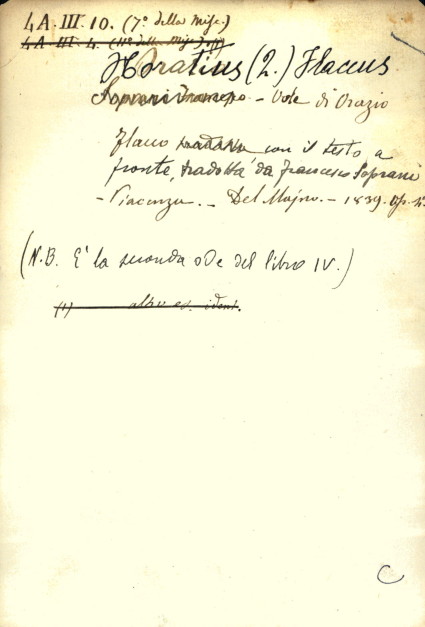 4.A.III.10. (7º della Misc.)
4.A.III.4. (11º della Misc.) (1)
Horatius (2.) Flaccus
Soprani Francesco - Ode di Orazio
Flacco tradotta con il testo a
fronte, tradotta da Francesco Soprani
- Piacenza. - Del Majno. - 1839. Op. in
(N.B. E' la seconda ode del libro IV.)
(1) altro es. ident.
C